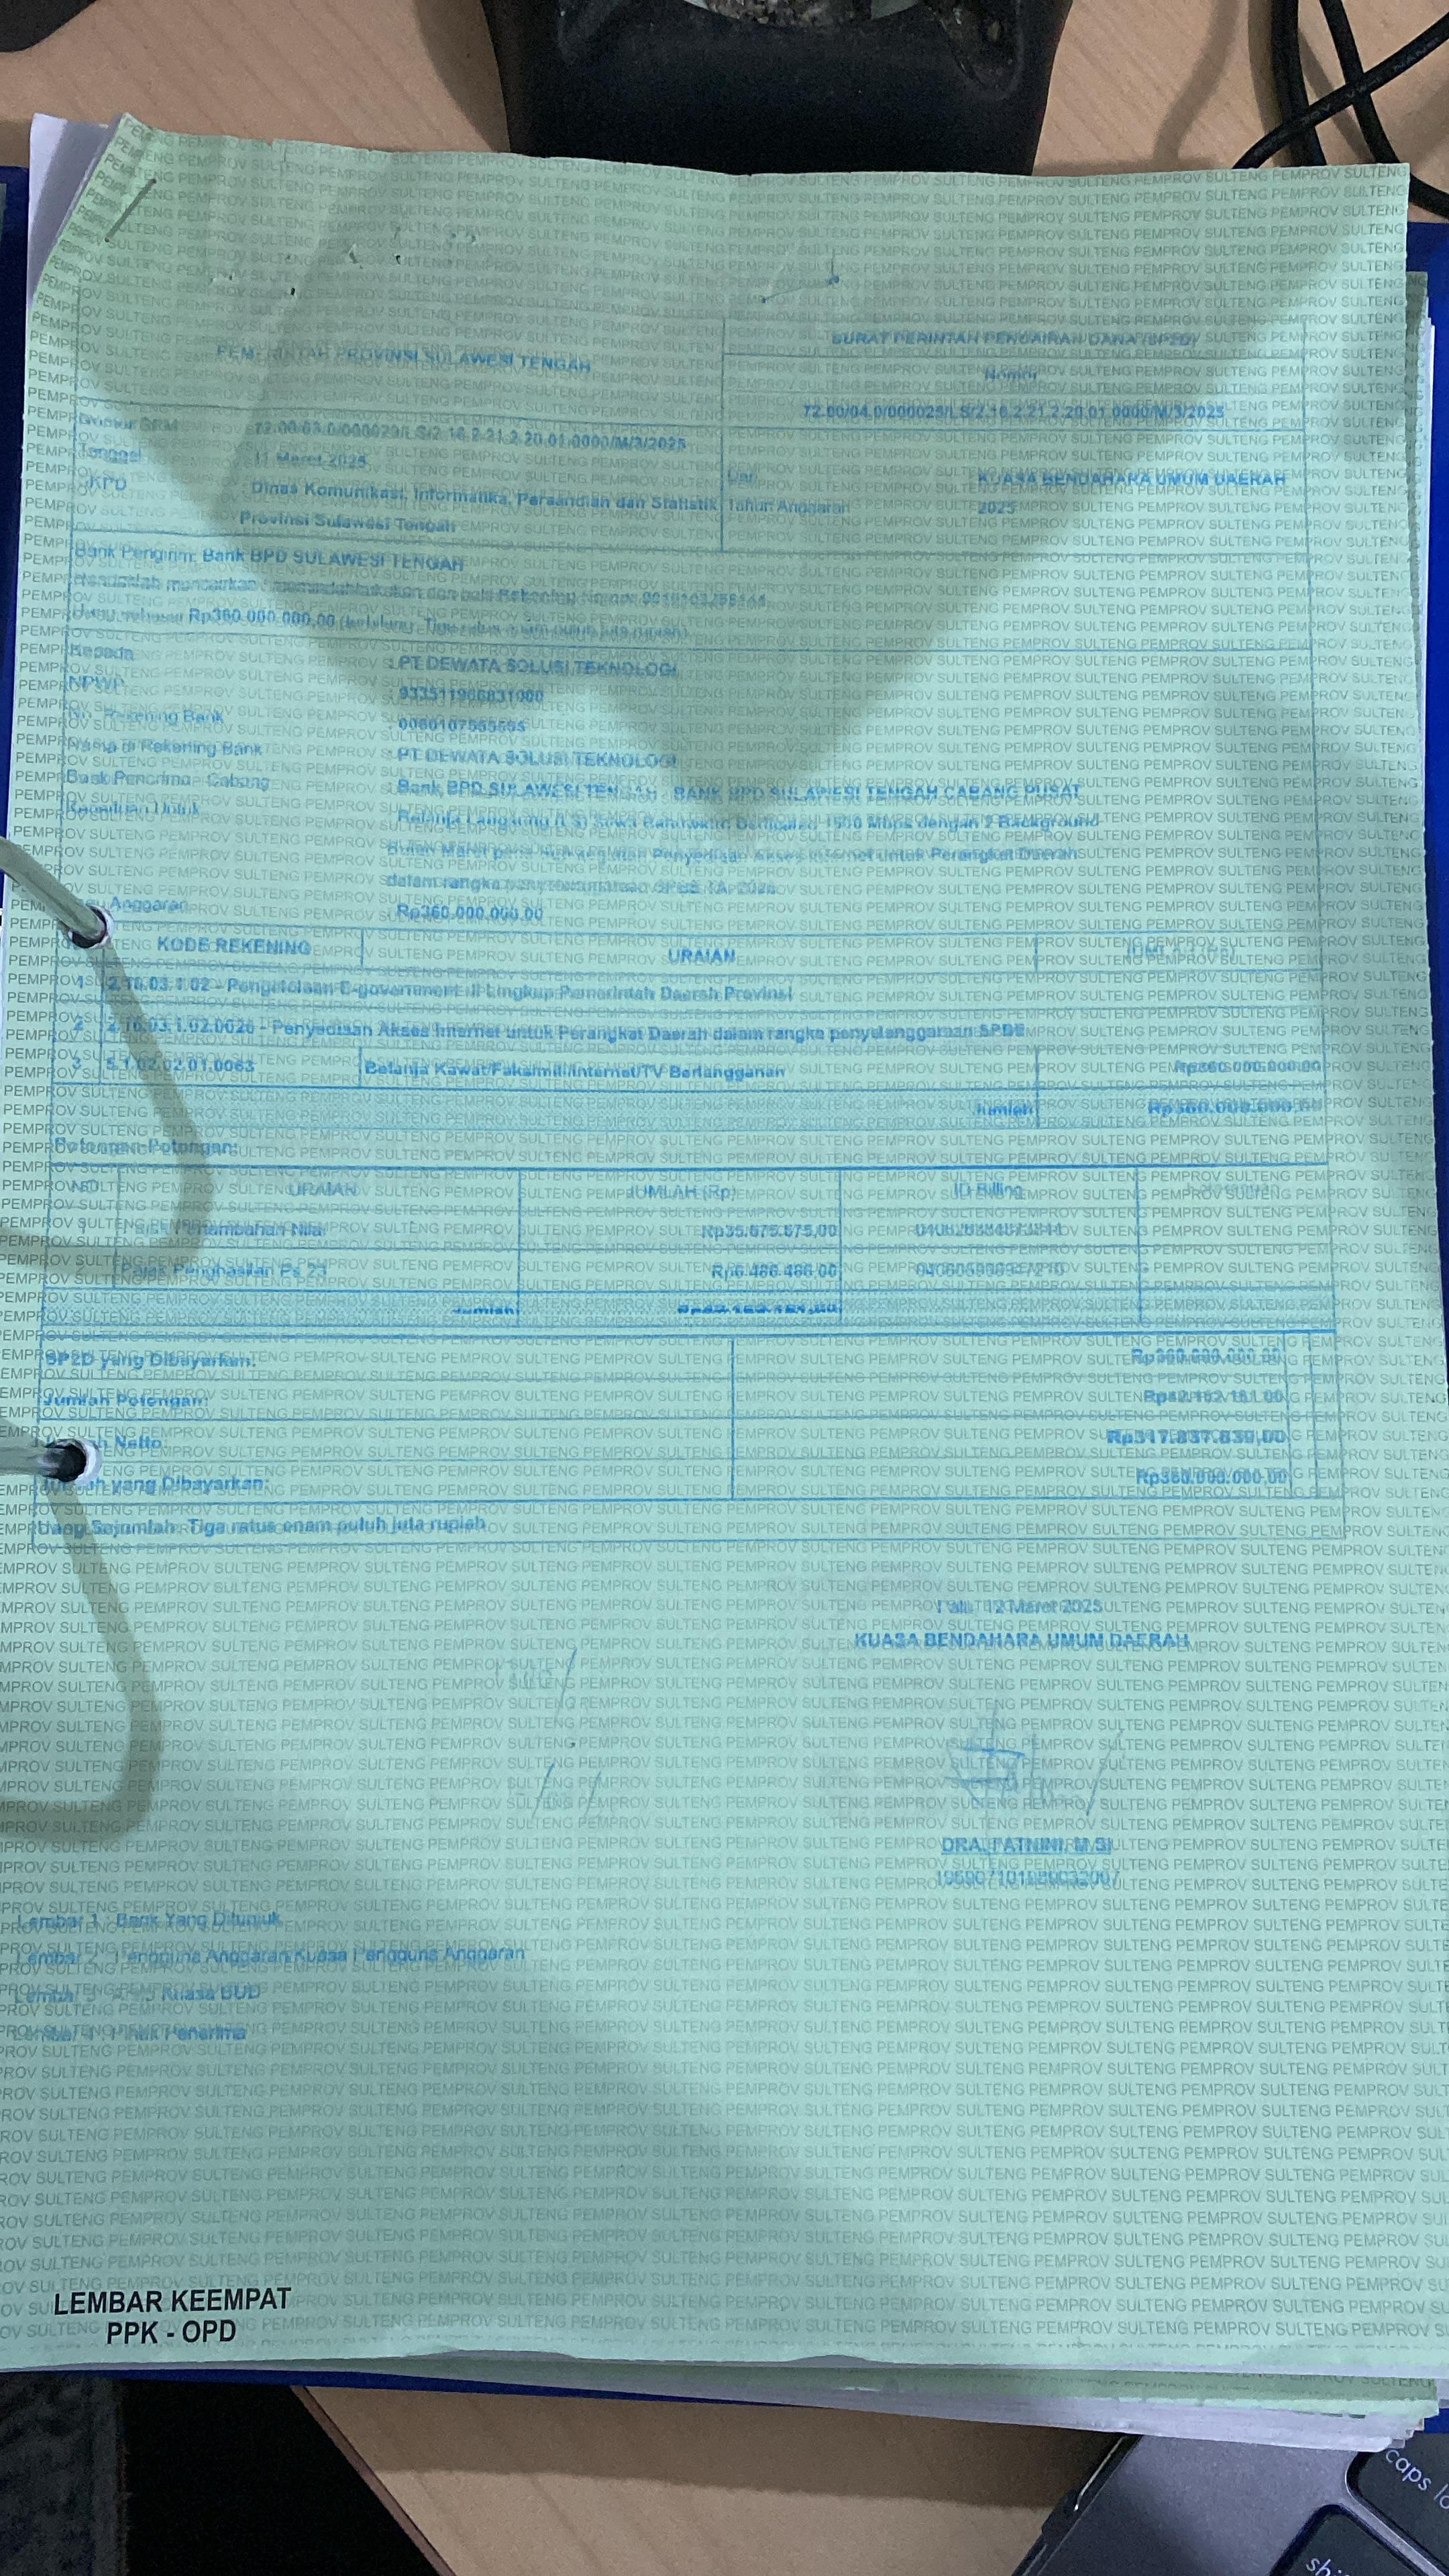 SURAT PERINTAH PENCAIRAN DANA (SP2D)
PEMERINTAH PROVINSI SULAWESI TENGAH
Nomor
72.00/04.0/000025/LS/2.16.2.21.2.20.01.0000/M/3/2025
Nomor SPM 72.00/03.0/000029/LS/2.16.2.21.2.20.01.0000/M/3/2025
Tanggal 11 Maret 2025
SKPD Dinas Komunikasi, Informatika, Persandian dan Statistik
Provinsi Sulawesi Tengah
Dari KUASA BENDAHARA UMUM DAERAH
Tahun Anggaran 2025
Bank Pengirim: Bank BPD SULAWESI TENGAH
Hendaklah mencairkan / memindahbukukan dari baki Rekening Nomor
Uang sebesar Rp360.000.000,00 (terbilang: Tiga ratus enam puluh juta rupiah)
Kepada : PT DEWATA SOLUSI TEKNOLOGI
NPWP :
No. Rekening Bank :
Nama di Rekening Bank : PT DEWATA SOLUSI TEKNOLOGI
Bank Penerima - Cabang : Bank BPD SULAWESI TENGAH - BANK BPD SULAWESI TENGAH CABANG PUSAT
Keperluan Untuk : Belanja Langsung (LS) Sewa Bandwidth Dedicated 1500 Mbps dengan 2 Background
Bulan Maret pada Sub kegiatan Penyediaan Akses Internet untuk Perangkat Daerah
dalam rangka penyelenggaraan SPBE TA.
Pagu Anggaran : Rp360.000.000,00
KODE REKENING URAIAN JUMLAH (Rp)
1 2.16.03.1.02 - Pengelolaan E-government di Lingkup Pemerintah Daerah Provinsi
2 2.16.03.1.02.0026 - Penyediaan Akses Internet untuk Perangkat Daerah dalam rangka penyelenggaraan SPBE
3 5.1.02.02.01.0063 Belanja Kawat/Faksimili/Internet/TV Berlangganan Rp360.000.000,00
Jumlah Rp360.000.000,00
Potongan-Potongan:
NO URAIAN JUMLAH (Rp) ID Billing
Pertambahan Nilai Rp35.675.675,00
Pajak Penghasilan Ps 23 Rp6.486.486,00
Jumlah Rp42.162.161,00
SP2D yang Dibayarkan: Rp360.000.000,00
Jumlah Potongan: Rp42.162.161,00
Jumlah Netto: Rp317.837.839,00
Jumlah yang Dibayarkan: Rp360.000.000,00
Uang Sejumlah: Tiga ratus enam puluh juta rupiah
Palu, 12 Maret 2025
KUASA BENDAHARA UMUM DAERAH
DRA. PATNINI, M.SI
Lembar 1 : Bank Yang Ditunjuk
Lembar 2 : Pengguna Anggaran/Kuasa Pengguna Anggaran
Lembar 3 : Arsip Kuasa BUD
Lembar 4 : Pihak Penerima
LEMBAR KEEMPAT
PPK - OPD
caps lo
shi